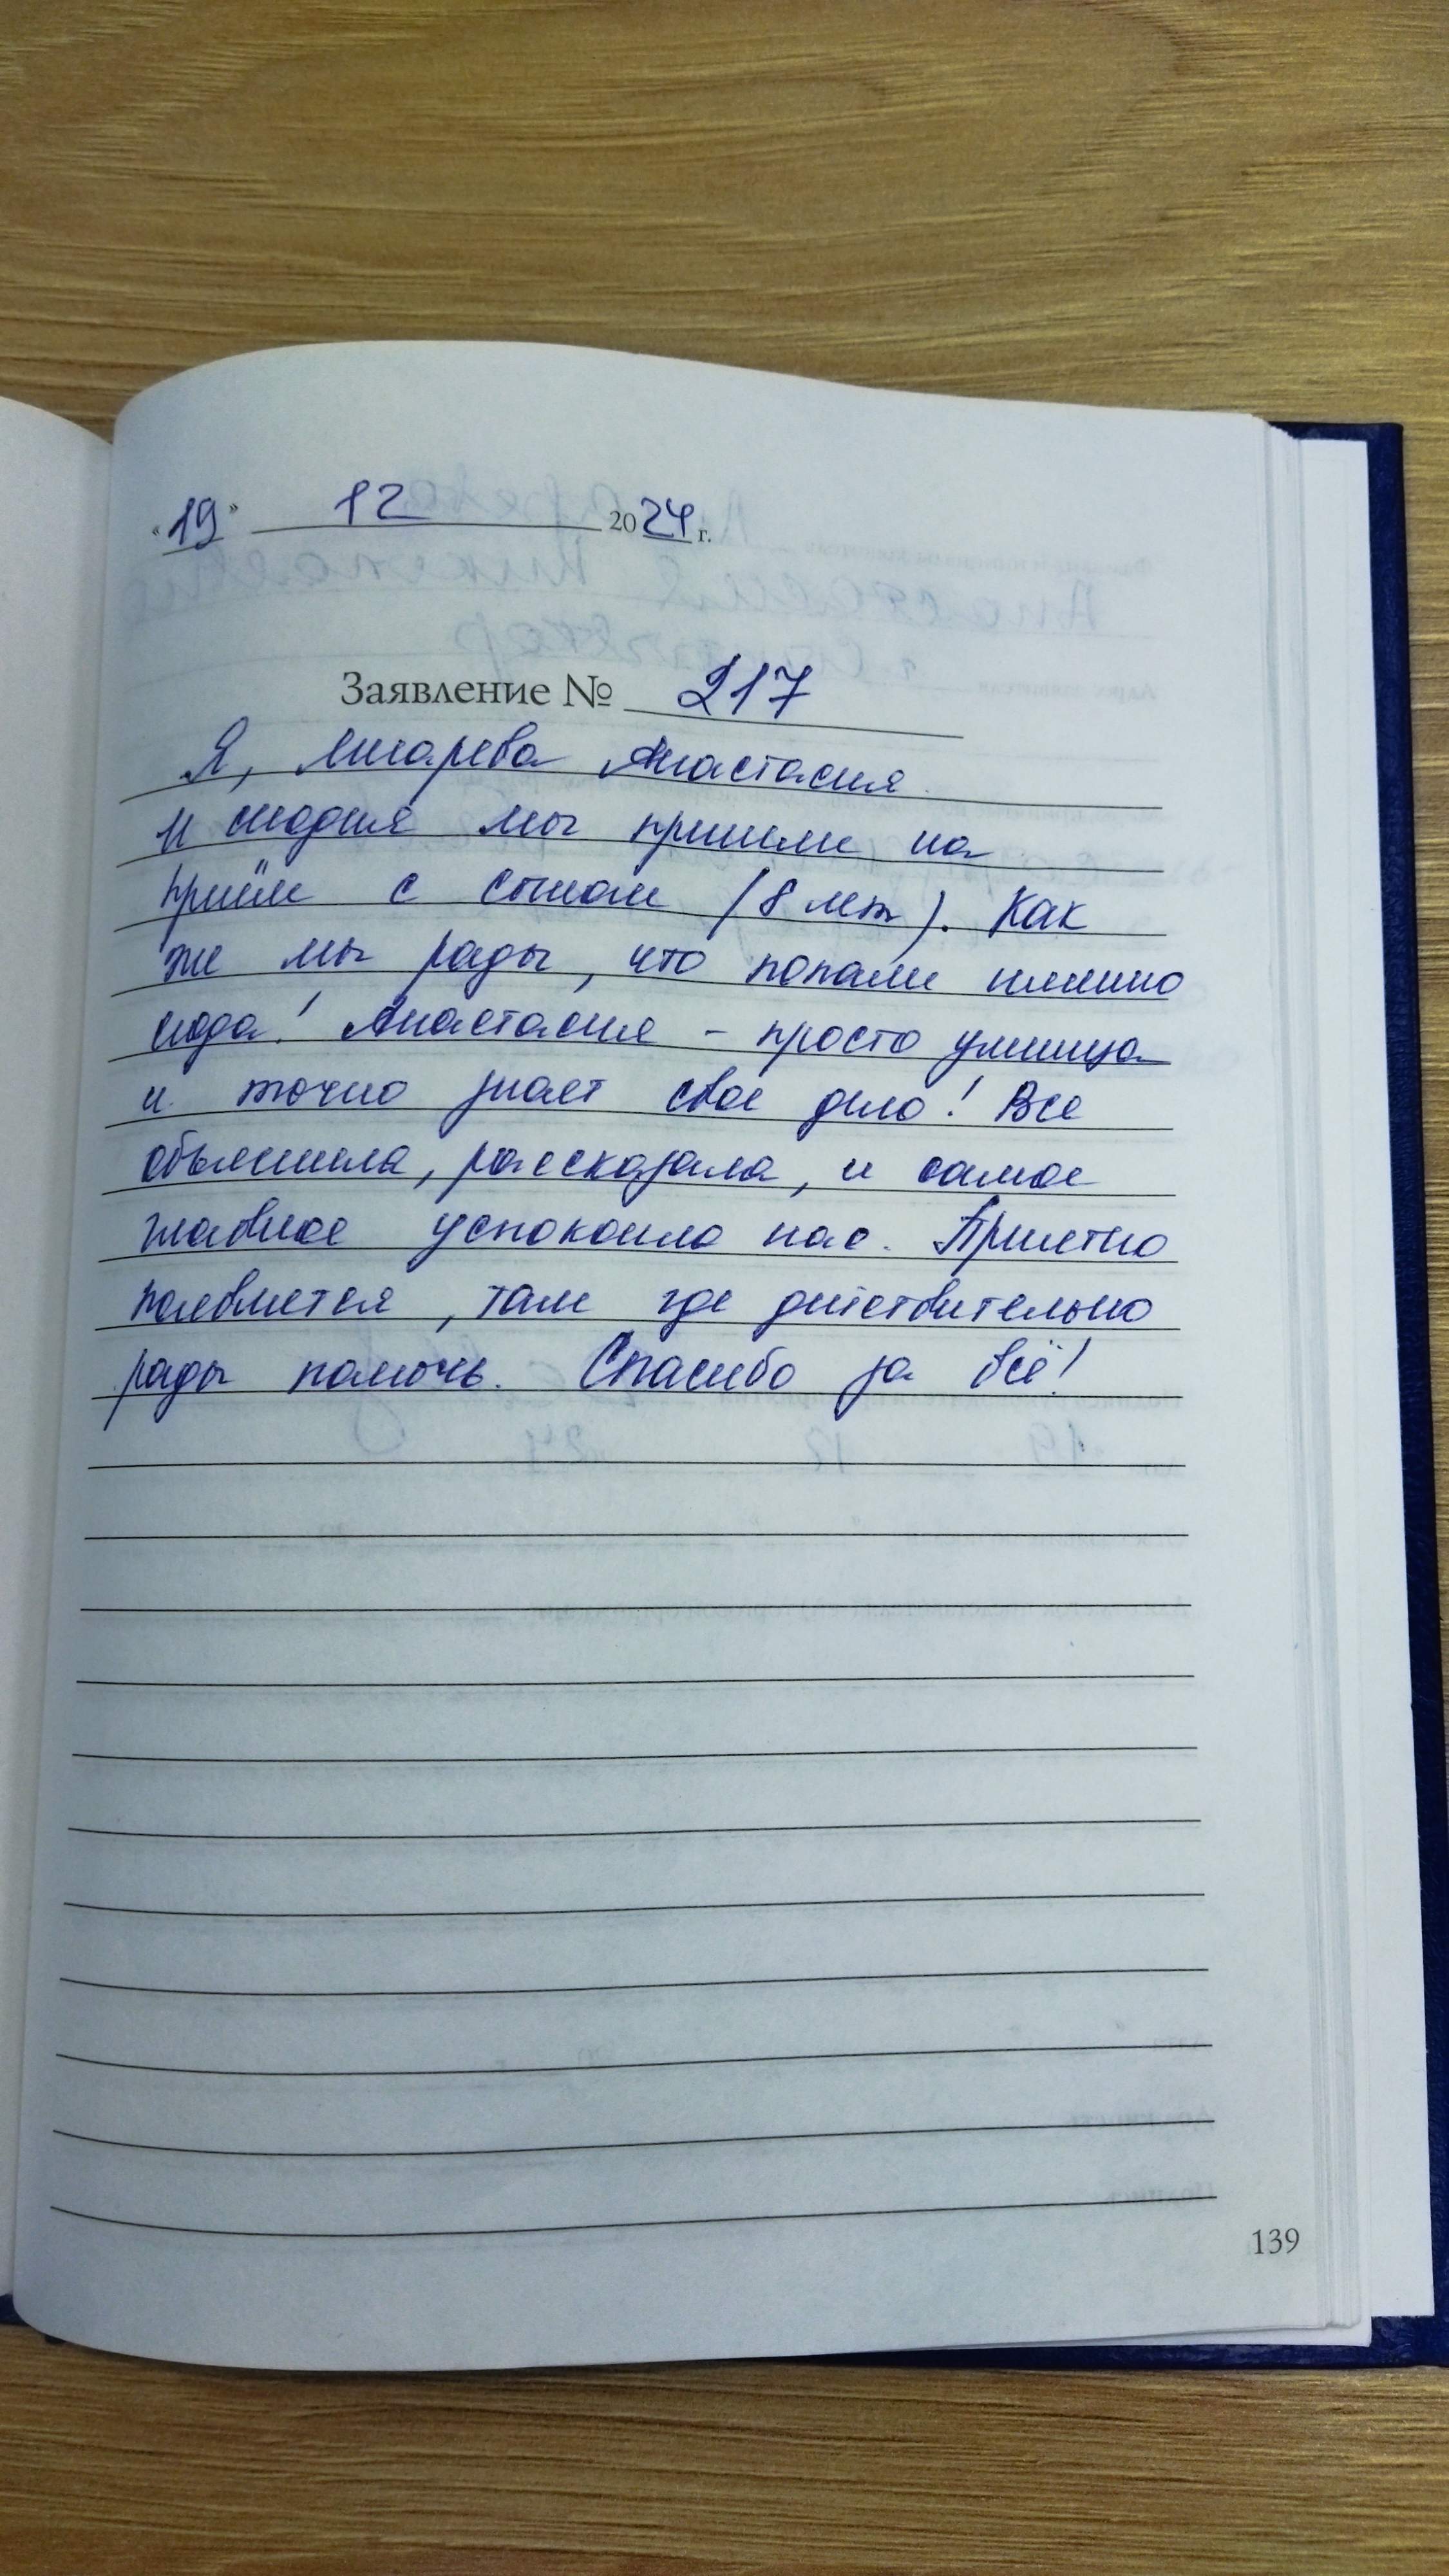 «19» 12 2024 г.
Заявление № 217
Я, Анастасия
И сегодня мы пришли на
приём с сыном (8 лет). Как
же мы рады, что попали именно
сюда! Анастасия - просто умница
и точно знает свое дело! Все
объяснила, рассказала, и самое
главное успокоила нас. Приятно
появляется, там где действительно
рады помочь. Спасибо за всё!
139